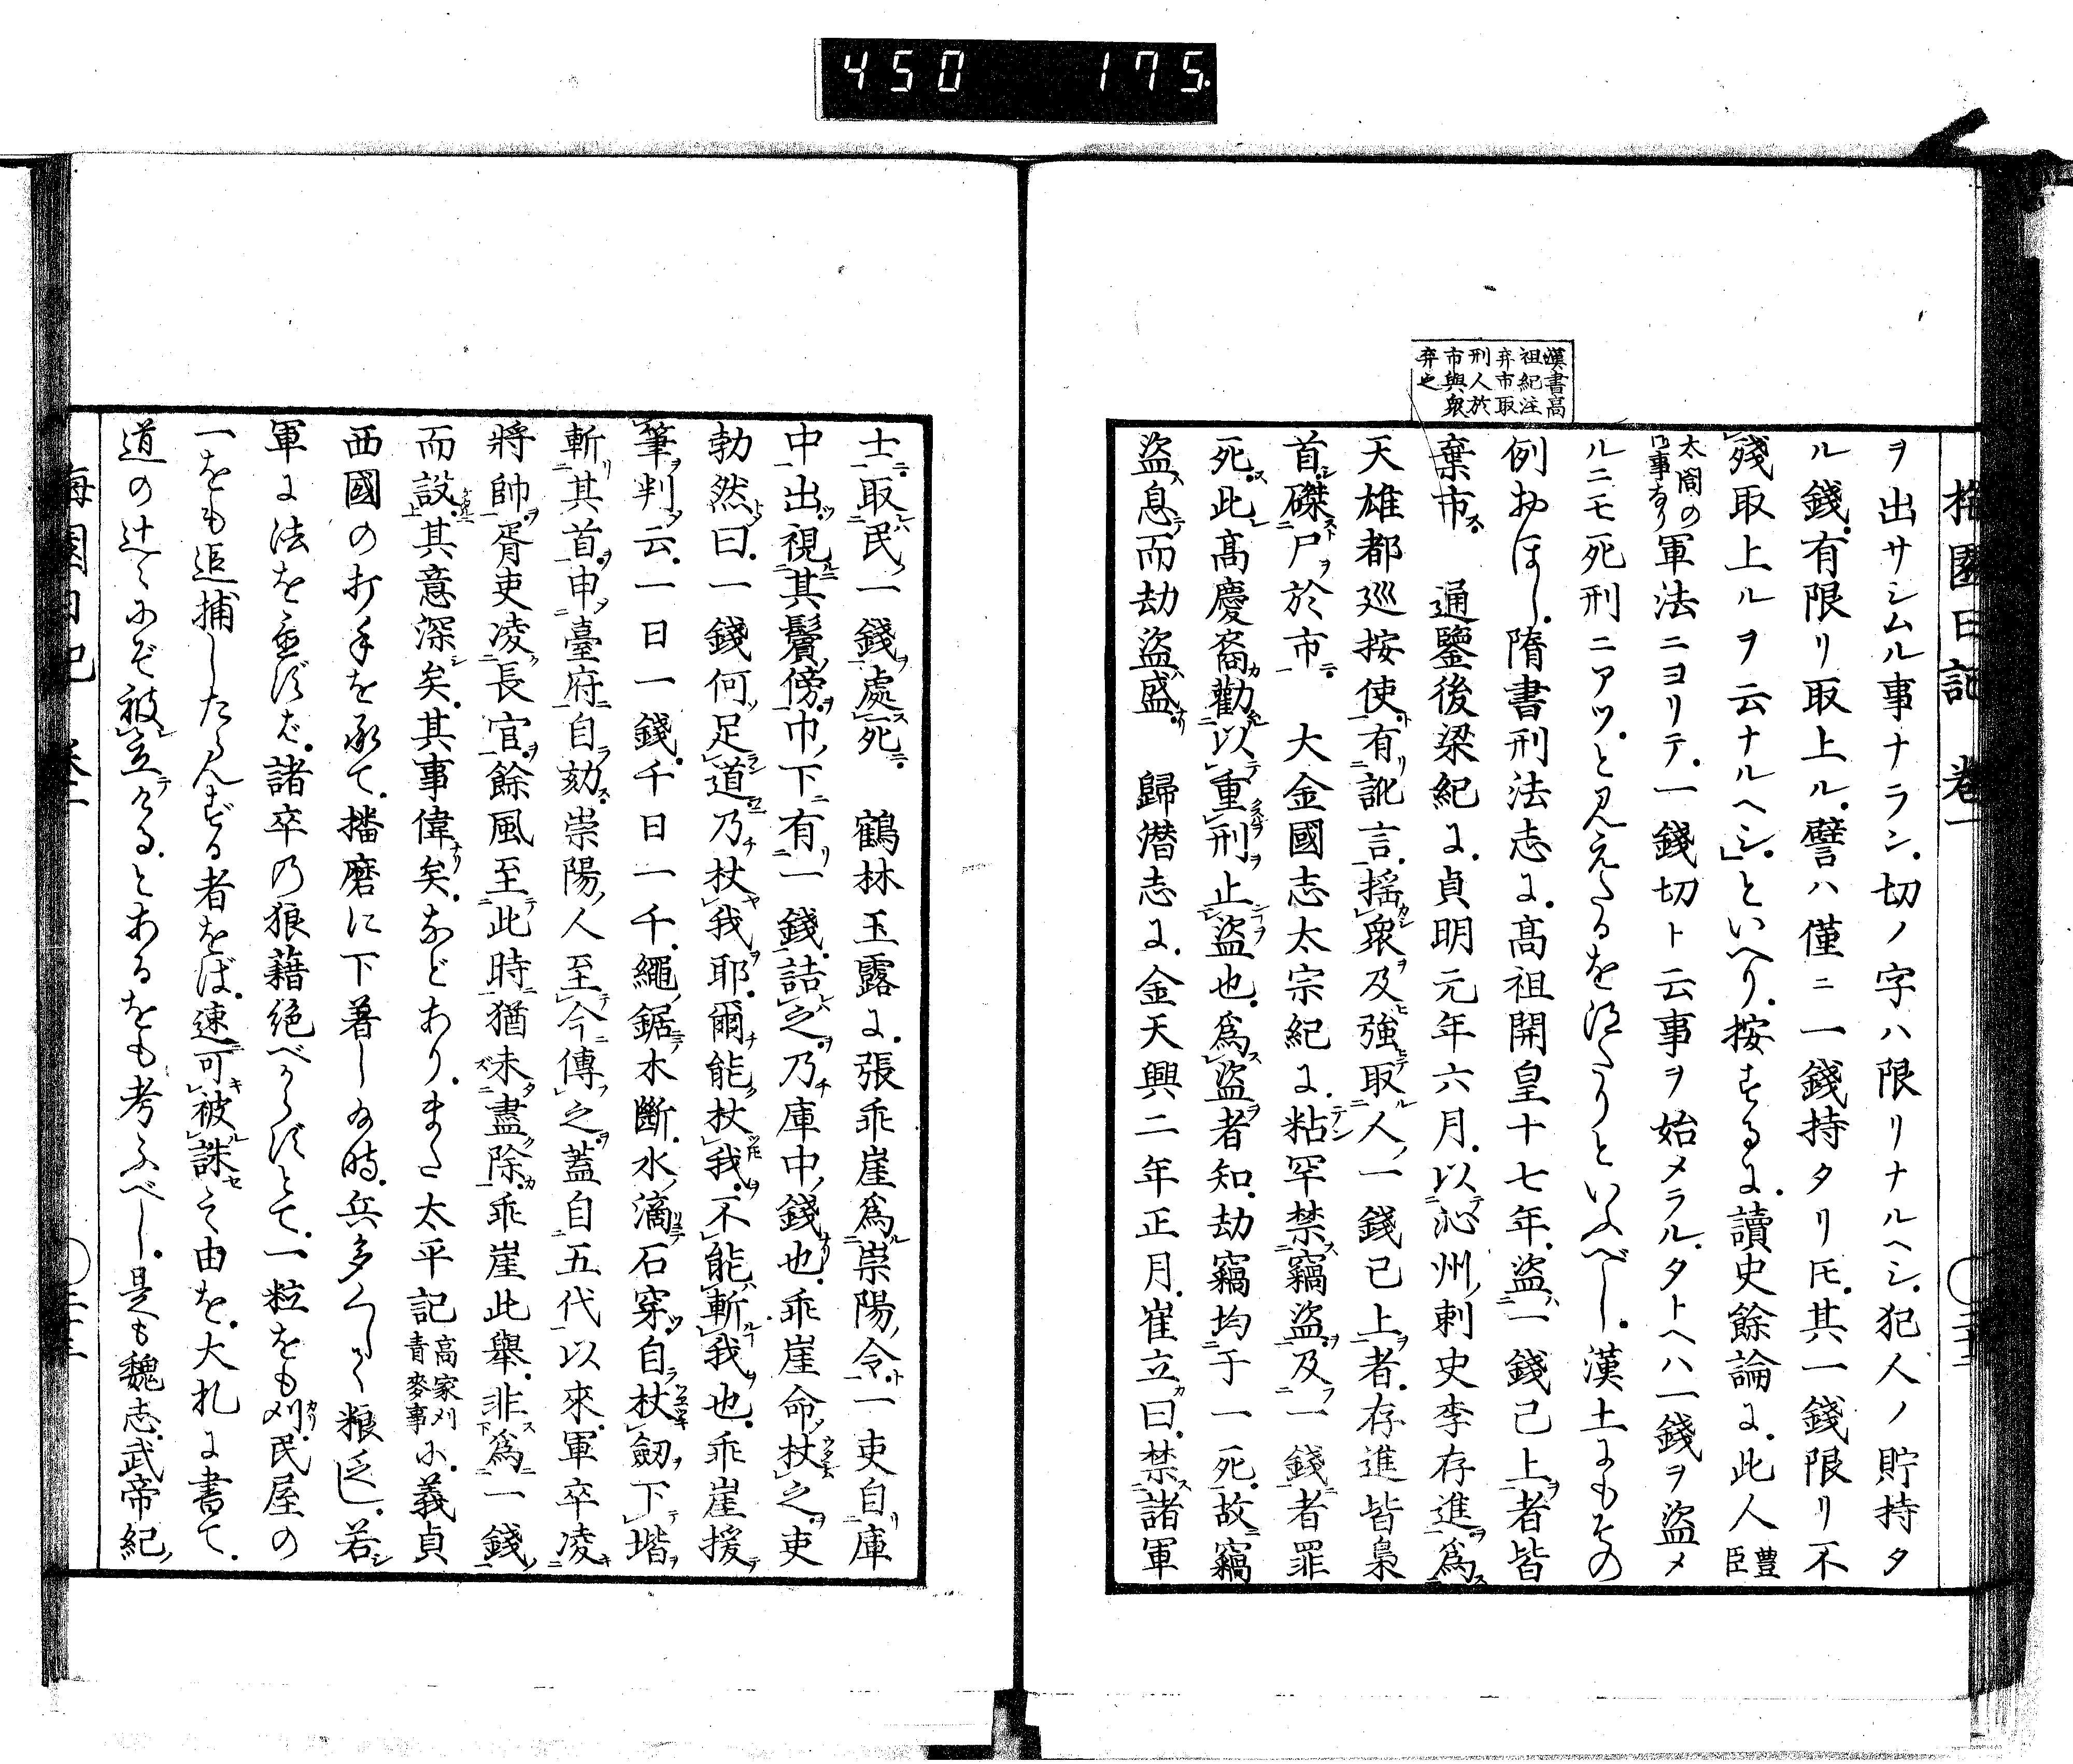 450 175.
漢書高
祖紀注
弃市取
刑人於
市與衆
弃之
梅園日記 巻一
ヲ出サシムル事ナラン切ノ字ハ限リナルヘシ犯人ノ貯持タ
ル錢有限リ取上ル譬ハ僅ニ一錢持タリ𪜈其一錢限リ不
殘取上ルヲ云ナルヘシ」といへり按するに讀史餘論に此人豊臣
太閤の事なり軍法ニヨリテ一錢切ト云事ヲ始メラルタトヘハ一錢ヲ盗メ
ルニモ死刑ニアツと見えたるを得たりといふべし漢土にもその
例おほし隋書刑法志に髙祖開皇十七年盗一錢已上者皆
棄市 通鑒後梁紀に貞明元年六月以沁州刺史李存進爲
天雄都巡按使有訛言搖衆及強取人一錢已上者存進皆梟
首磔尸於市 大金國志太宗紀に粘罕禁竊盗及一錢者罪
死此髙慶裔勸以重刑止盗也爲盗者知劫竊均于一死故竊
盗息而劫盗盛 歸潜志に金天興二年正月崔立曰禁諸軍
士取民一錢處死 鶴林玉露に張乖崖爲崇陽令一吏自庫
中出視其鬢傍巾下有一錢詰之乃庫中錢也乖崖命杖之吏
勃然曰一錢何足道乃杖我耶爾能杖我不能斬我也乖崖援
筆判云一日一錢千日一千繩鋸木斷水滴石穿自杖劒下堦
斬其首申臺府自劾崇陽人至今傳之蓋自五代以來軍卒凌
將帥胥吏凌長官餘風至此時猶未盡除乖崖此舉非爲一錢
而設其意深矣其事偉矣などありまた太平記高家刈青麥事に義貞
西國の打手を承て播磨に下着し給時兵多くして粮乏し若
軍に法を置ずば諸卒乃狼藉絶べからずとて一粒をも刈民屋の
一をも追捕したらんずる者をば速可被誅之由を大札に書て
道の辻〱にぞ被立ける」とあるをも考ふべし是も魏志武帝紀